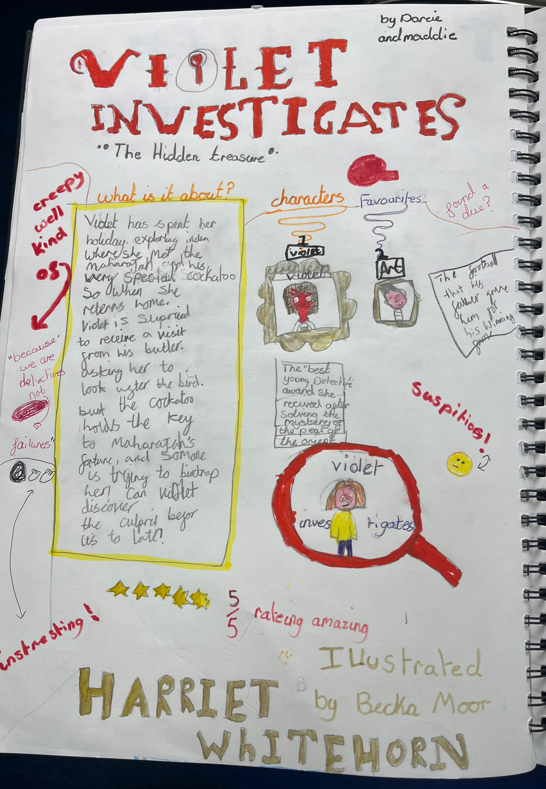 by Darcie
and maddie
VIOLET
INVESTIGATES
"The Hidden treasure"
creepy
well
kind
of
what is it about?
Violet has spent her
holiday exploring
where she met the
maharajah and his
very special cockatoo
So when she
reterns home.
Violet is suprized
to receive a visit
from his butler.
asking her to
look after the bird.
but the cockatoo
holds the key
to Maharajah's
fortune, and
is trying to
her! Can violet
discover
the culprit
it's to late?
characters
1
violet
Favourites
2
Art
found a
clue?
The football
that his
father gave
him
his winning
"because
we are
detectives
not
failures"
The "best
young Detective
award she
recived after
Solving the
mystery of
the pearl of
the orient
Suspitios!
violet
inves
tigates
instresting!
5/5 rateing amazing
Illustrated
by Becka Moor
HARRIET
WHITEHORN